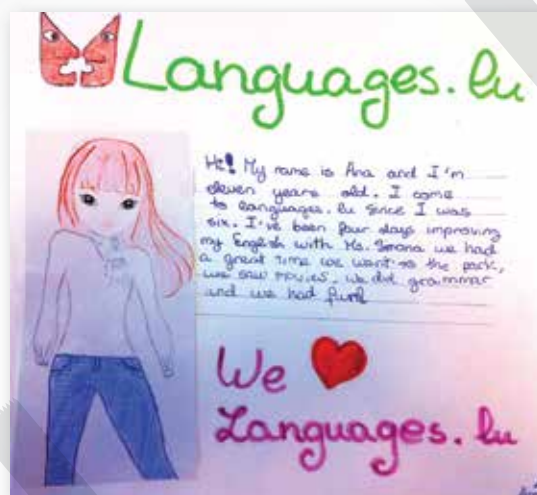 Languages.lu
Hi! My name is Ana and I'm
eleven years old. I come
to languages.lu since I was
six. I've been four days improving
my English with Ms. Simona we had
a great time we want to the park,
we saw movies, we did grammar
and we had fun!
We
Languages.lu